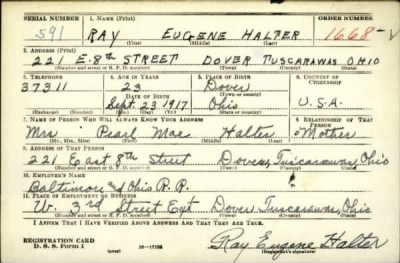 SERIAL NUMBER 1. NAME (Print) ORDER NUMBER
591 RAY EUGENE HALTER 1668-V
(First) (Middle) (Last)
2. ADDRESS (Print)
221 E-8th STREET DOVER TUSCARAWAS OHIO
(Number and street or R. F. D. number) (Town) (County) (State)
3. TELEPHONE 4. AGE IN YEARS 5. PLACE OF BIRTH 6. COUNTRY OF CITIZENSHIP
37311 23 Dover
DATE OF BIRTH (Town or county)
Sept. 23 1917 Ohio U.S.A.
(Exchange) (Number) (Mo.) (Day) (Yr.) (State or country)
7. NAME OF PERSON WHO WILL ALWAYS KNOW YOUR ADDRESS 8. RELATIONSHIP OF THAT PERSON
Mrs Pearl Mae Halter Mother
(Mr., Mrs., Miss) (First) (Middle) (Last)
9. ADDRESS OF THAT PERSON
221 East 8th Street Dover, Tuscarawas, Ohio
(Number and street or R. F. D. number) (Town) (County) (State)
10. EMPLOYER'S NAME
Baltimore and Ohio R.R.
11. PLACE OF EMPLOYMENT OR BUSINESS
W. 3rd Street Ext Dover, Tuscarawas, Ohio
(Number and street or R. F. D. number) (Town) (County) (State)
I AFFIRM THAT I HAVE VERIFIED ABOVE ANSWERS AND THAT THEY ARE TRUE.
REGISTRATION CARD
D. S. S. Form 1 (over) Ray Eugene Halter
(Registrant's signature)